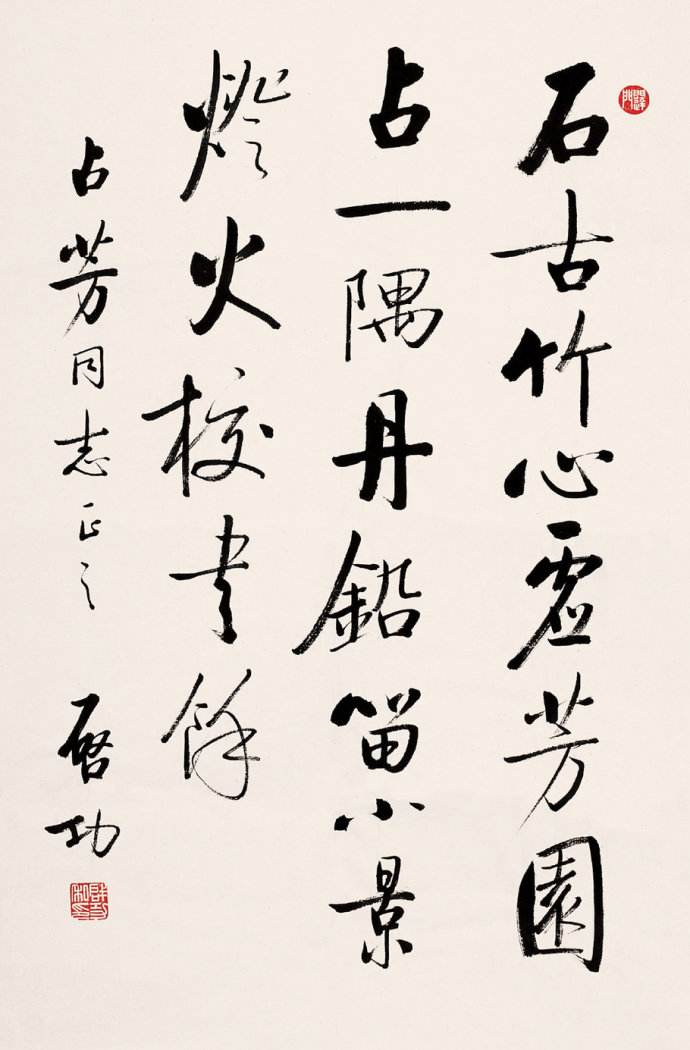 石古竹心虚芳園
占一隅丹鉛留小景
燈火校书餘
占芳同志正之
啓功